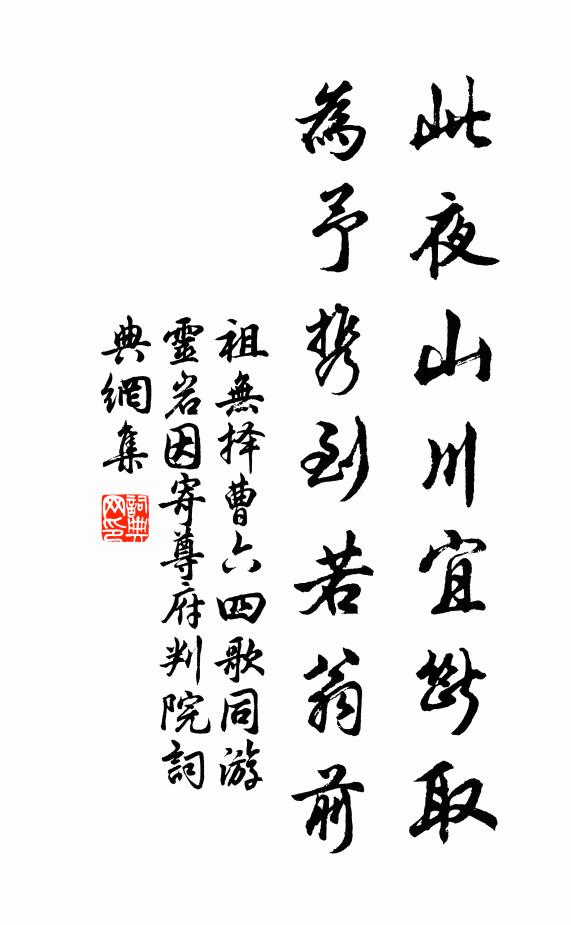 此夜山川宜斷取
為予携到若翁前
祖無择曹六四歌同游
靈岩因寄尊府判院詞
典網集
詞典網印